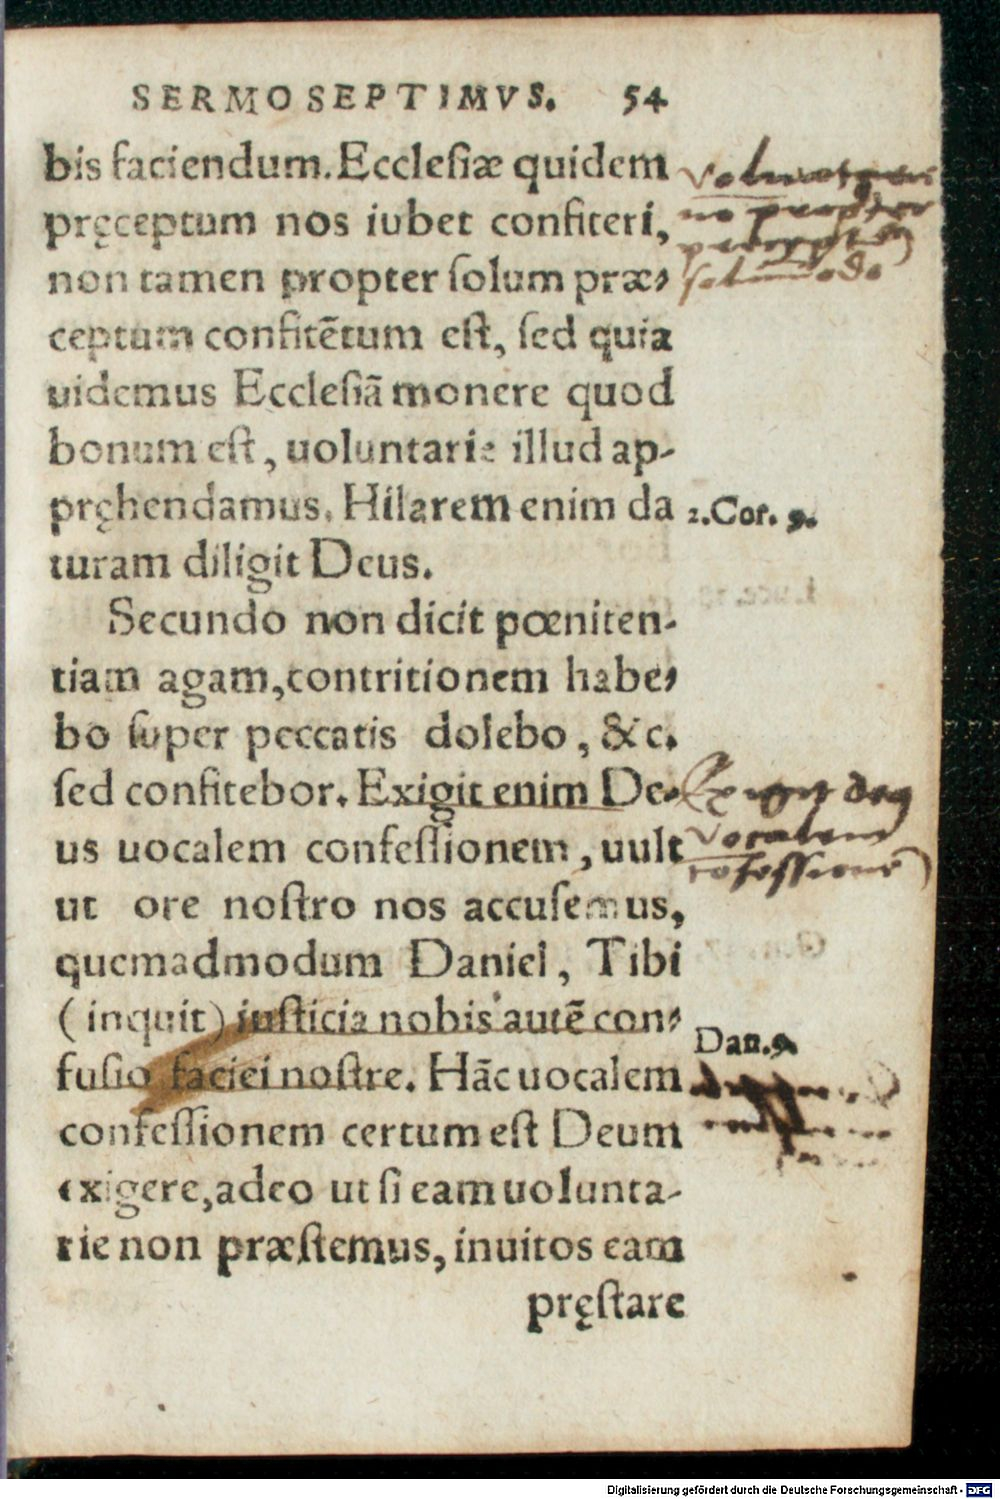 SERMO SEPTIMVS. 54
bis faciendum. Ecclesiæ quidem
pręceptum nos iubet confiteri,
non tamen propter ſolum præ-
ceptum confitẽtum eſt, ſed quia
uidemus Eccleſiã monere quod
bonum eſt, uoluntarie illud ap-
pręhendamus. Hilarem enim da
turam diligit Deus.
2. Cor. 9.
Secundo non dicit pœniten-
tiam agam, contritionem habe-
bo ſuper peccatis dolebo, &c.
ſed confitebor. Exigit enim De-
us uocalem confeſſionem, uult
ut ore noſtro nos accuſemus,
quemadmodum Daniel, Tibi
(inquit) iuſticia nobis autẽ con-
Dan. 9.
fuſio faciei noſtre. Hãc uocalem
confeſſionem certum eſt Deum
exigere, adeo ut ſi eam uolunta-
rie non præſtemus, inuitos eam
pręſtare
propter
Exigit deus
vocalem
cõfessionẽ
Digitalisierung gefördert durch die Deutsche Forschungsgemeinschaft - DFG